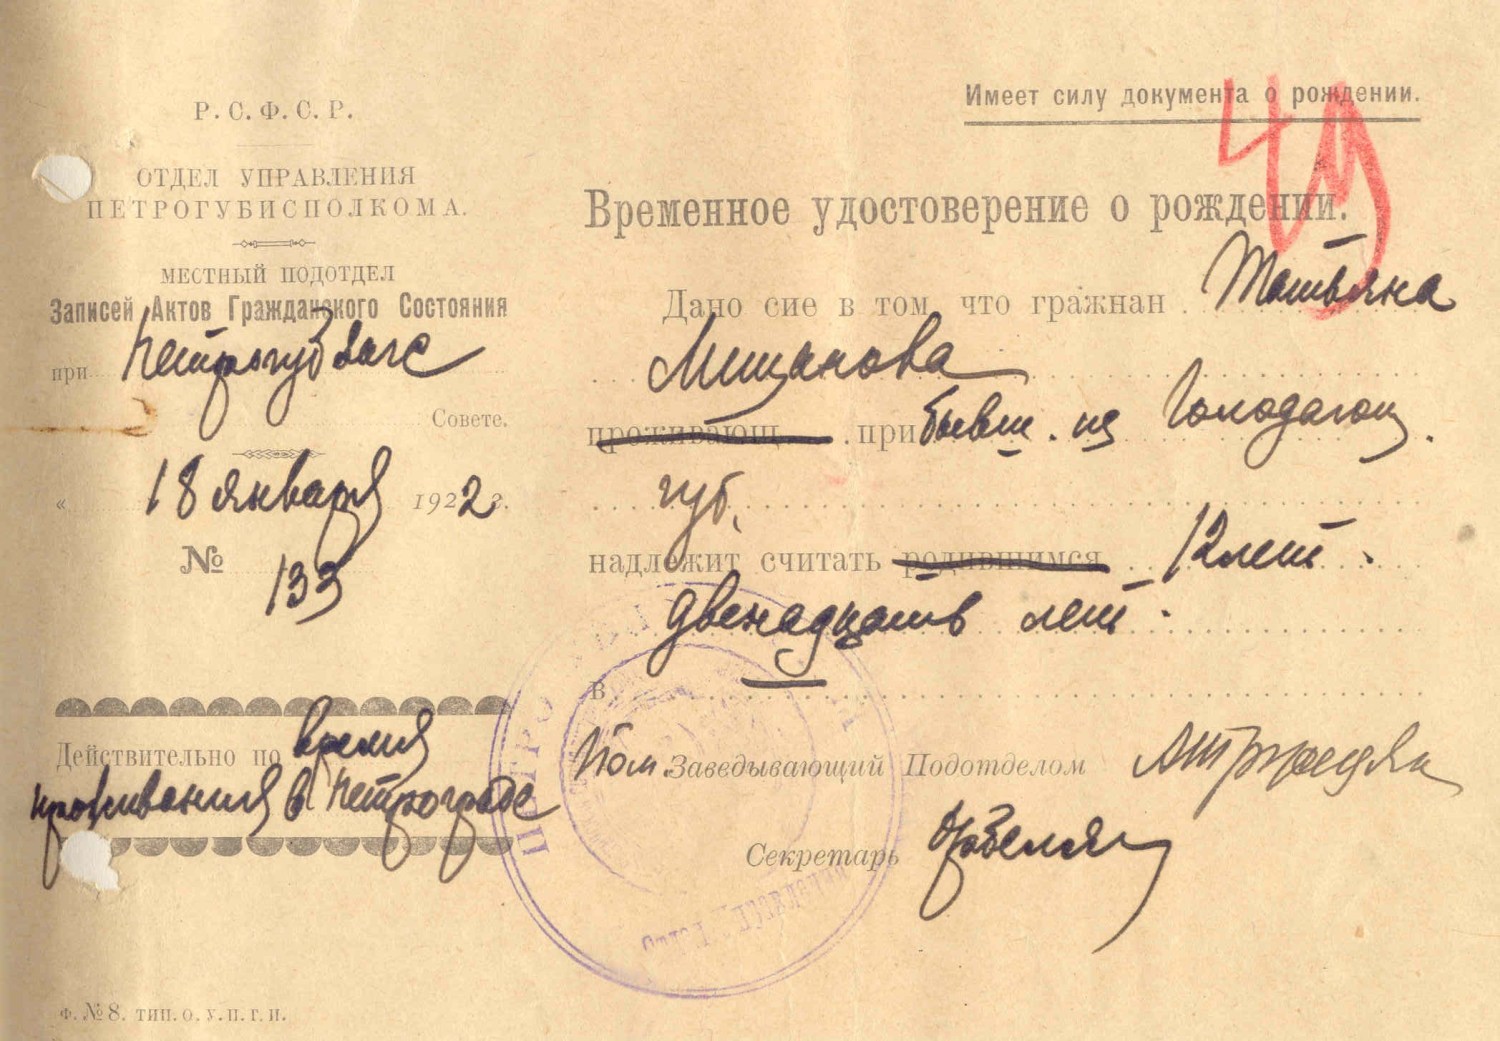 Р. С. Ф. С. Р.
ОТДЕЛ УПРАВЛЕНИЯ
ПЕТРОГУБИСПОЛКОМА.
МЕСТНЫЙ ПОДОТДЕЛ
Записей Актов Гражданского Состояния
при Петрогубзагс
Совете.
« 18 января 1922 г.
№ 133
Действительно по время
проживания в Петрограде
Ф. № 8. тип. о. у. п. г. и.
Имеет силу документа о рождении.
49
Временное удостоверение о рождении.
Дано сие в том, что гражнан Татьяна
Мищанова
проживающ при бывш. из Голодающ.
губ.
надлежит считать родившимся 12 лет.
двенадцать лет.
в
Пом. Заведывающий Подотделом
Секретарь
Отдел Управления